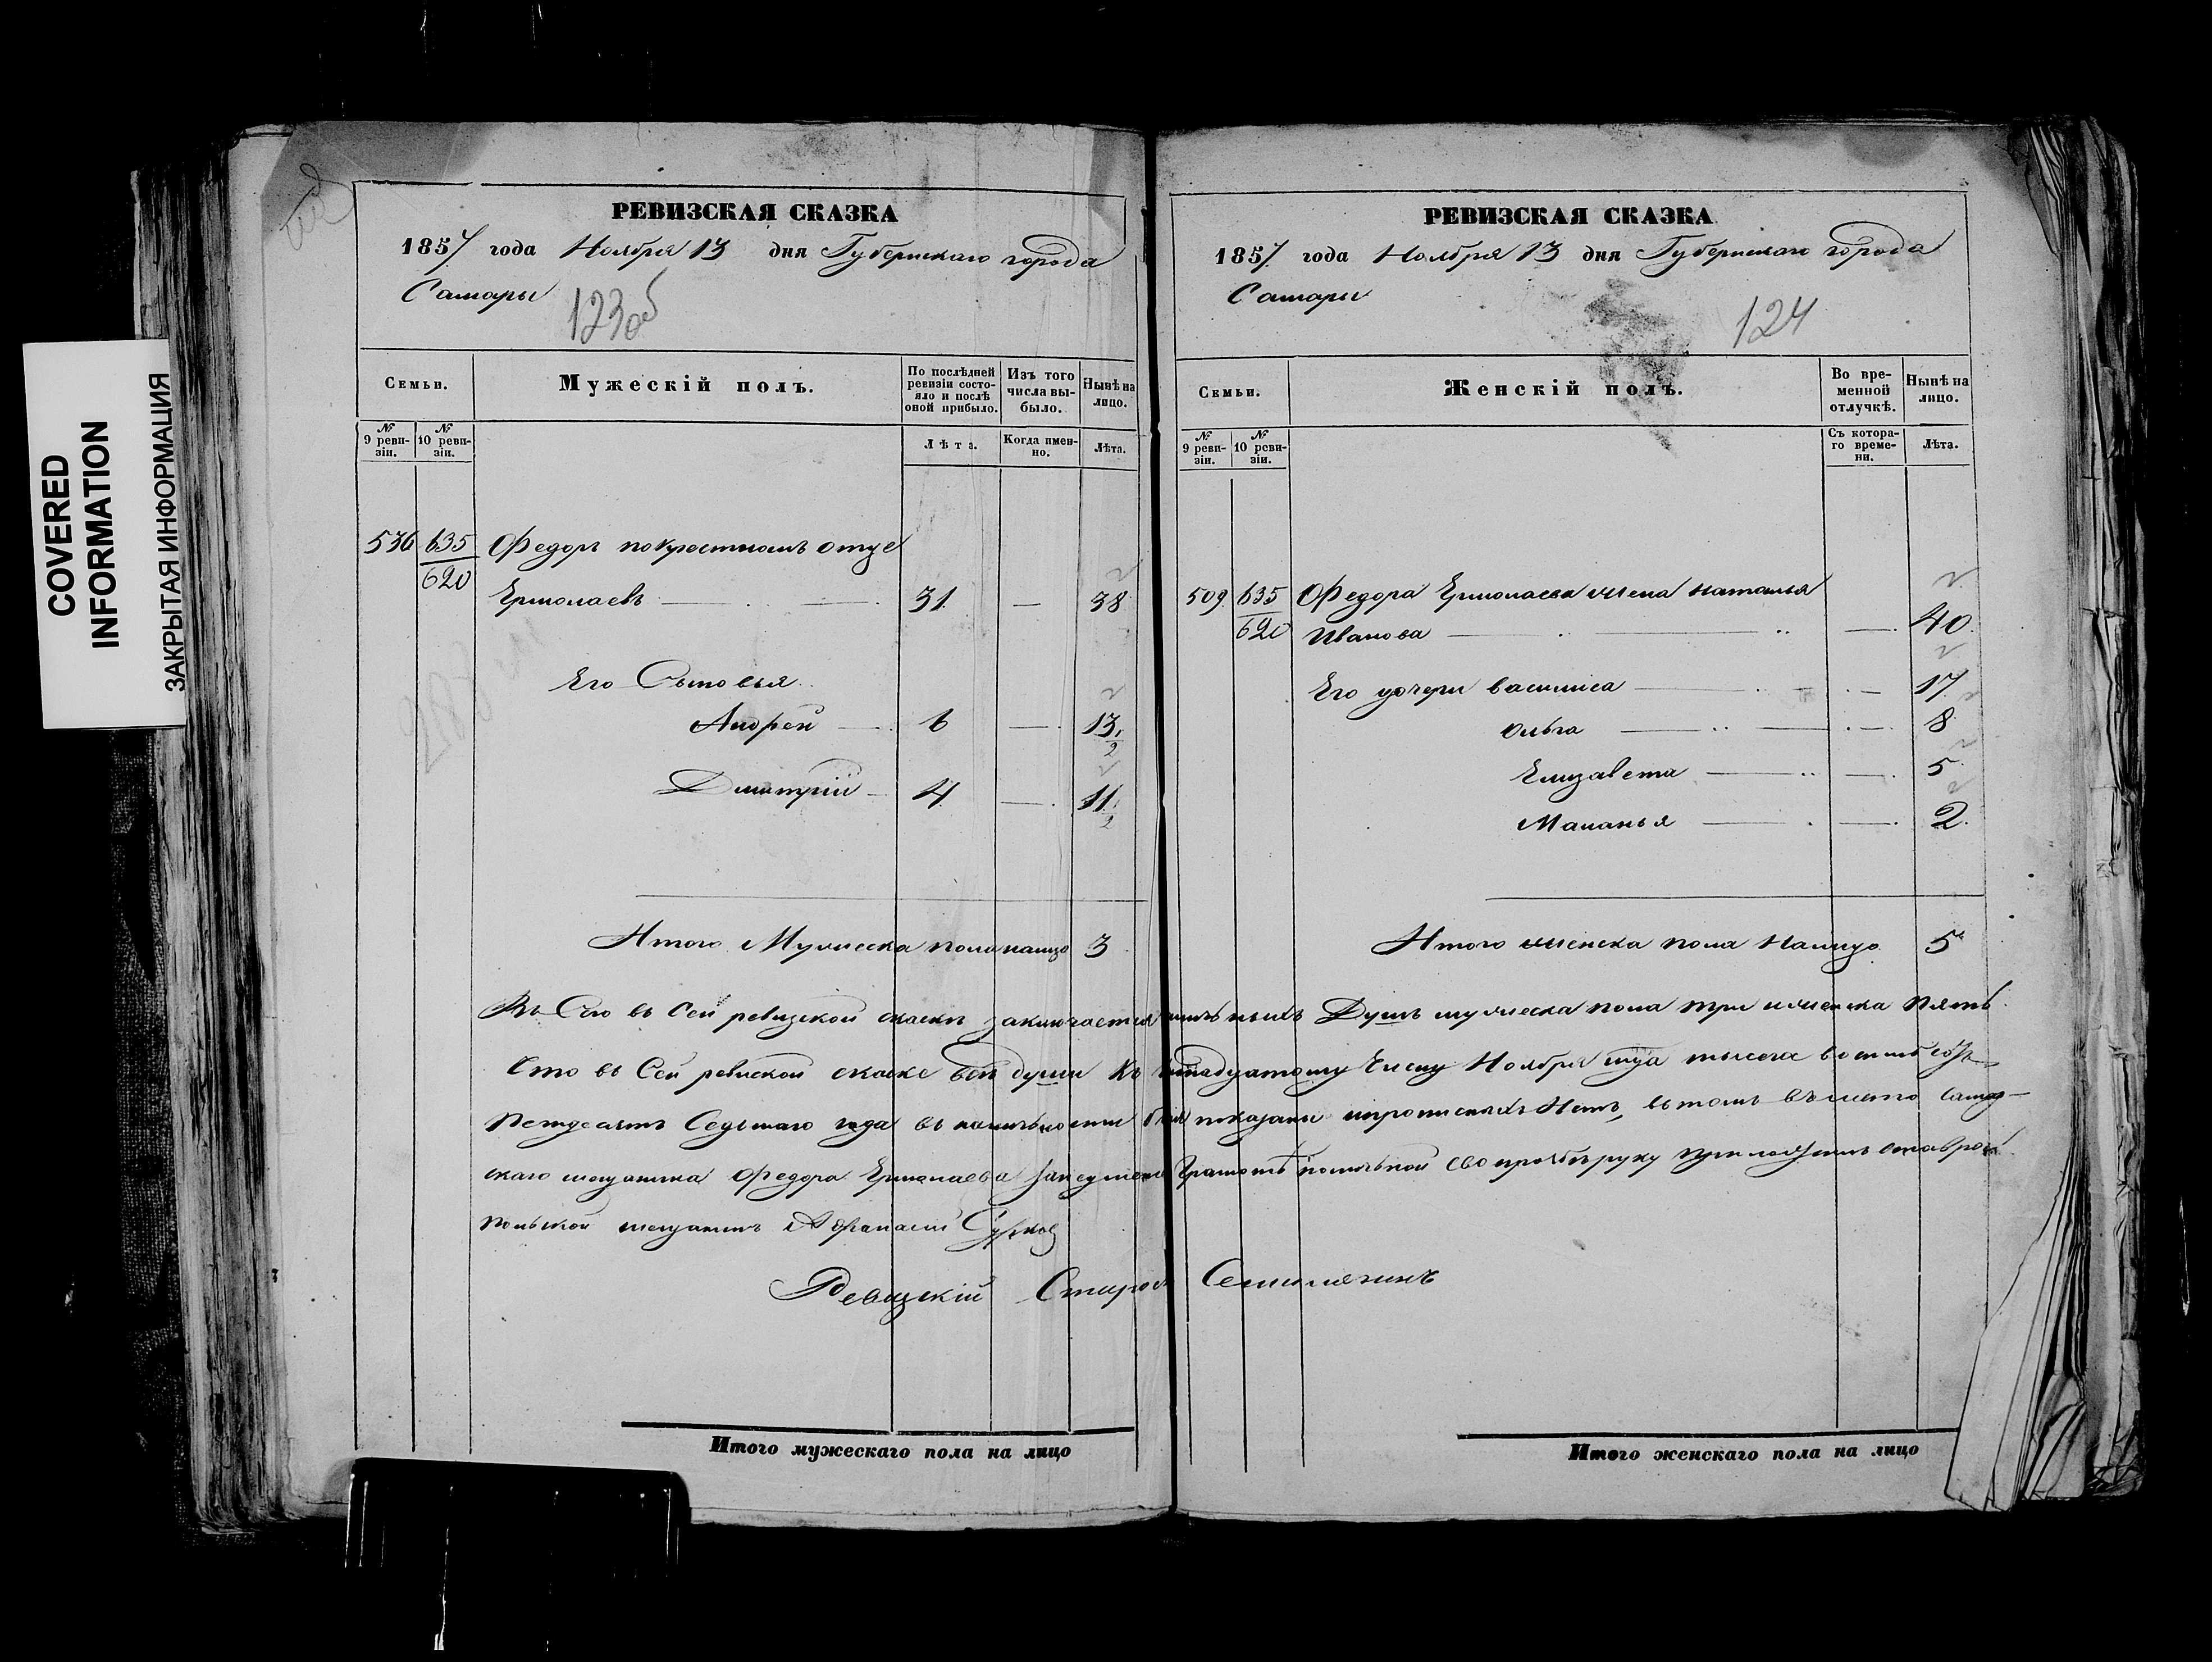 COVERED
INFORMATION
ЗАКРЫТАЯ ИНФОРМАЦИЯ
РЕВИЗСКАЯ СКАЗКА
1857 года Ноября 13 дня Губернскаго города
Самары
123об
Семьи.
Мужескій полъ.
По послѣдней ревизіи состояло и послѣ оной прибыло.
Изъ того числа выбыло.
Нынѣ на лицо.
№ 9 ревизіи.
№ 10 ревизіи.
Лѣта.
Когда именно.
Лѣта.
536 635 Федоръ покрестномъ отце
620
Ермолаевъ 31 — 38
Его Сыновья
Андрей 6 — 13
2
Дмитрій 4 — 11
2
Итого Мужеска пола налицо 3
РЕВИЗСКАЯ СКАЗКА
1857 года Ноября 13 дня Губернскаго города
Самары
124
Семьи.
Женскій полъ.
Во временной отлучкѣ.
Нынѣ на лицо.
№ 9 ревизіи.
№ 10 ревизіи.
Съ котораго времени.
Лѣта.
509 635 Федора Ермолаева жена наталья
620 Иванова — 40
Его дочери василиса — 17
Ольга — 8
Елизавета — 5
Маланья — 2
Итого женска пола Налицо 5
въ Сей ревизской скаске заключается Душъ мужеска пола три ижменска пять
Что въ Сей ревиской скаске все души Къ Числу Ноября мца тысеча восимь сотъ
Петдесятъ Седьмаго года въ показаны ипрописныхъ Нетъ, въ томъ въместо самар-
скаго мещанина Федора Ермолаева Грамоте поличьной Его прозбе руку приложилъ ставро
польской мещанинъ Афанасий Сурков
Ревизкій Староста
Итого мужескаго пола на лицо
Итого женскаго пола на лицо